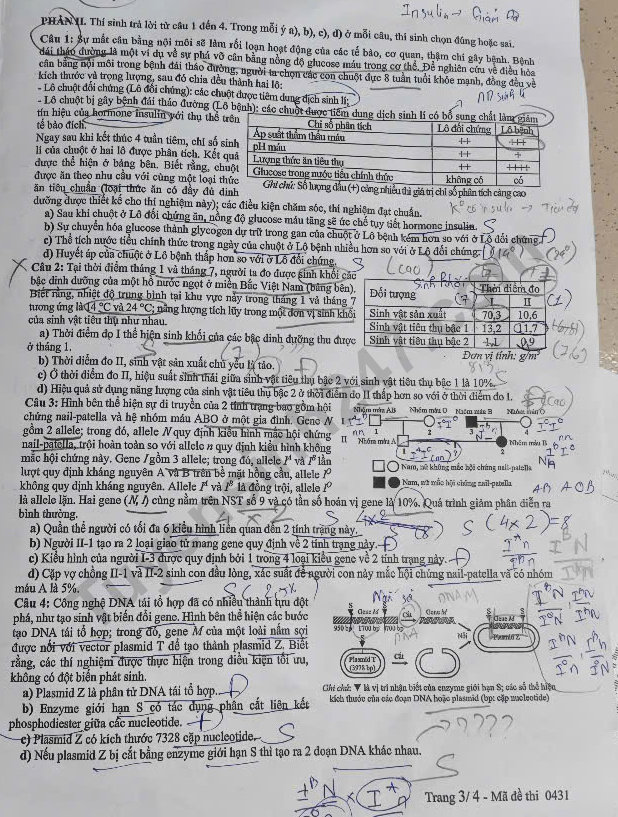 Insulin → Giảm đg
PHẦN II. Thí sinh trả lời từ câu 1 đến 4. Trong mỗi ý a), b), c), d) ở mỗi câu, thí sinh chọn đúng hoặc sai.
Câu 1: Sự mất cân bằng nội môi sẽ làm rối loạn hoạt động của các tế bào, cơ quan, thậm chí gây bệnh. Bệnh
đái tháo đường là một ví dụ về sự phá vỡ cân bằng nồng độ glucose máu trong cơ thể. Để nghiên cứu về điều hòa
cân bằng nội môi trong bệnh đái tháo đường, người ta chọn các con chuột đực 8 tuần tuổi khỏe mạnh, đồng đều về
kích thước và trọng lượng, sau đó chia đều thành hai lô:
- Lô chuột đối chứng (Lô đối chứng): các chuột được tiêm dung dịch sinh lí;
- Lô chuột bị gây bệnh đái tháo đường (Lô bệnh): các chuột được tiêm dung dịch sinh lí có bổ sung chất làm giảm
tín hiệu của hormone insulin với thụ thể trên
tế bào đích.
Ngay sau khi kết thúc 4 tuần tiêm, chỉ số sinh
lí của chuột ở hai lô được phân tích. Kết quả
được thể hiện ở bảng bên. Biết rằng, chuột
được ăn theo nhu cầu với cùng một loại thức
ăn tiêu chuẩn (loại thức ăn có đầy đủ dinh
dưỡng được thiết kế cho thí nghiệm này); các điều kiện chăm sóc, thí nghiệm đạt chuẩn.
Chỉ số phân tích Lô đối chứng Lô bệnh
Áp suất thẩm thấu máu ++ +++
pH máu ++ +
Lượng thức ăn tiêu thụ ++ ++++
Glucose trong nước tiểu chính thức không có có
Ghi chú: Số lượng dấu (+) càng nhiều thì giá trị chỉ số phân tích càng cao
a) Sau khi chuột ở Lô đối chứng ăn, nồng độ glucose máu tăng sẽ ức chế tụy tiết hormone insulin. S
b) Sự chuyển hóa glucose thành glycogen dự trữ trong gan của chuột ở Lô bệnh kém hơn so với ở Lô đối chứng.
c) Thể tích nước tiểu chính thức trong ngày của chuột ở Lô bệnh nhiều hơn so với ở Lô đối chứng.
d) Huyết áp của chuột ở Lô bệnh thấp hơn so với ở Lô đối chứng. S
Câu 2: Tại thời điểm tháng 1 và tháng 7, người ta đo được sinh khối các
bậc dinh dưỡng của một hồ nước ngọt ở miền Bắc Việt Nam (bảng bên).
Biết rằng, nhiệt độ trung bình tại khu vực này trong tháng 1 và tháng 7
tương ứng là 14 °C và 24 °C; năng lượng tích lũy trong mỗi đơn vị sinh khối
của sinh vật tiêu thụ như nhau.
Đối tượng Thời điểm đo
I II
Sinh vật sản xuất 70,3 10,6
Sinh vật tiêu thụ bậc 1 13,2 11,7
Sinh vật tiêu thụ bậc 2 1,1 0,9
Đơn vị tính: g/m³
a) Thời điểm đo I thể hiện sinh khối của các bậc dinh dưỡng thu được
ở tháng 1.
b) Thời điểm đo II, sinh vật sản xuất chủ yếu là tảo.
c) Ở thời điểm đo II, hiệu suất sinh thái giữa sinh vật tiêu thụ bậc 2 với sinh vật tiêu thụ bậc 1 là 10%. S
d) Hiệu quả sử dụng năng lượng của sinh vật tiêu thụ bậc 2 ở thời điểm đo II thấp hơn so với ở thời điểm đo I.
Câu 3: Hình bên thể hiện sự di truyền của 2 tính trạng bao gồm hội
chứng nail-patella và hệ nhóm máu ABO ở một gia đình. Gene N
gồm 2 allele; trong đó, allele N quy định kiểu hình mắc hội chứng
nail-patella, trội hoàn toàn so với allele n quy định kiểu hình không
mắc hội chứng này. Gene I gồm 3 allele; trong đó, allele Iᴬ và Iᴮ lần
lượt quy định kháng nguyên A và B trên bề mặt hồng cầu, allele I⁰
không quy định kháng nguyên. Allele Iᴬ và Iᴮ là đồng trội, allele I⁰
là allele lặn. Hai gene (N, I) cùng nằm trên NST số 9 và có tần số hoán vị gene là 10%. Quá trình giảm phân diễn ra
bình thường.
Nhóm máu AB Nhóm máu O Nhóm máu B Nhóm máu O
I 1 2 3 4
II Nhóm máu A 1 2 Nhóm máu B
Nam, nữ không mắc hội chứng nail-patella
Nam, nữ mắc hội chứng nail-patella
a) Quần thể người có tối đa 6 kiểu hình liên quan đến 2 tính trạng này. (8) S (4 x 2) = 8
b) Người II-1 tạo ra 2 loại giao tử mang gene quy định về 2 tính trạng này.
c) Kiểu hình của người I-3 được quy định bởi 1 trong 4 loại kiểu gene về 2 tính trạng này.
d) Cặp vợ chồng II-1 và II-2 sinh con đầu lòng, xác suất để người con này mắc hội chứng nail-patella và có nhóm
máu A là 5%.
Câu 4: Công nghệ DNA tái tổ hợp đã có nhiều thành tựu đột
phá, như tạo sinh vật biến đổi gene. Hình bên thể hiện các bước
tạo DNA tái tổ hợp; trong đó, gene M của một loài nấm sợi
được nối với vector plasmid T để tạo thành plasmid Z. Biết
rằng, các thí nghiệm được thực hiện trong điều kiện tối ưu,
không có đột biến phát sinh.
S Gene M S Cắt Gene M
950 bp 1700 bp 700 bp
Plasmid T (3978 bp) Cắt Nối
S Gene M S Plasmid Z
Ghi chú: ▼ là vị trí nhận biết của enzyme giới hạn S; các số thể hiện
kích thước của các đoạn DNA hoặc plasmid (bp: cặp nucleotide)
a) Plasmid Z là phân tử DNA tái tổ hợp.
b) Enzyme giới hạn S có tác dụng phân cắt liên kết
phosphodiester giữa các nucleotide.
c) Plasmid Z có kích thước 7328 cặp nucleotide. S
d) Nếu plasmid Z bị cắt bằng enzyme giới hạn S thì tạo ra 2 đoạn DNA khác nhau.
Trang 3/ 4 - Mã đề thi 0431